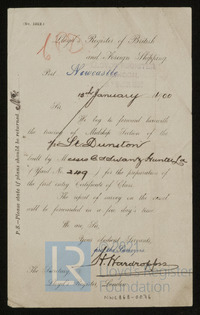 Lloyd's Register of British
and Foreign Shipping
Port Newcastle
12th January 1900
Sir,
We beg to forward herewith
the tracing of Midship Section of the
St Dunstan
built by Messrs C. S. Swan & Hunter Ld
Yard No. 249, for the preparation of
the first entry Certificate of Class.
The report of survey on the vessel
will be forwarded in a few days' time.
We are, Sir,
Your obedient Servants,
H. Hardropps
The Secretary,
Lloyd's Register
P.S.—Please state if plans should be returned.
LR
Lloyd's Register
Foundation